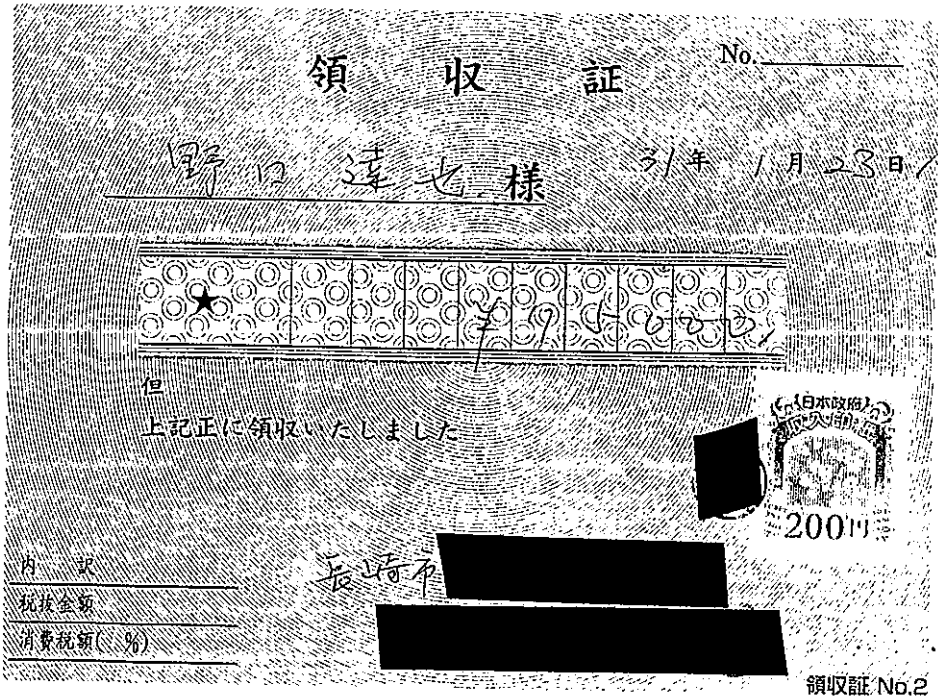 領収証
No.
野口達也 様
31年 1月 23日
★ ¥95000
但
上記正に領収いたしました
日本政府
収入印紙
200円
内訳
税抜金額
消費税額( %)
長崎市
領収証 No.2